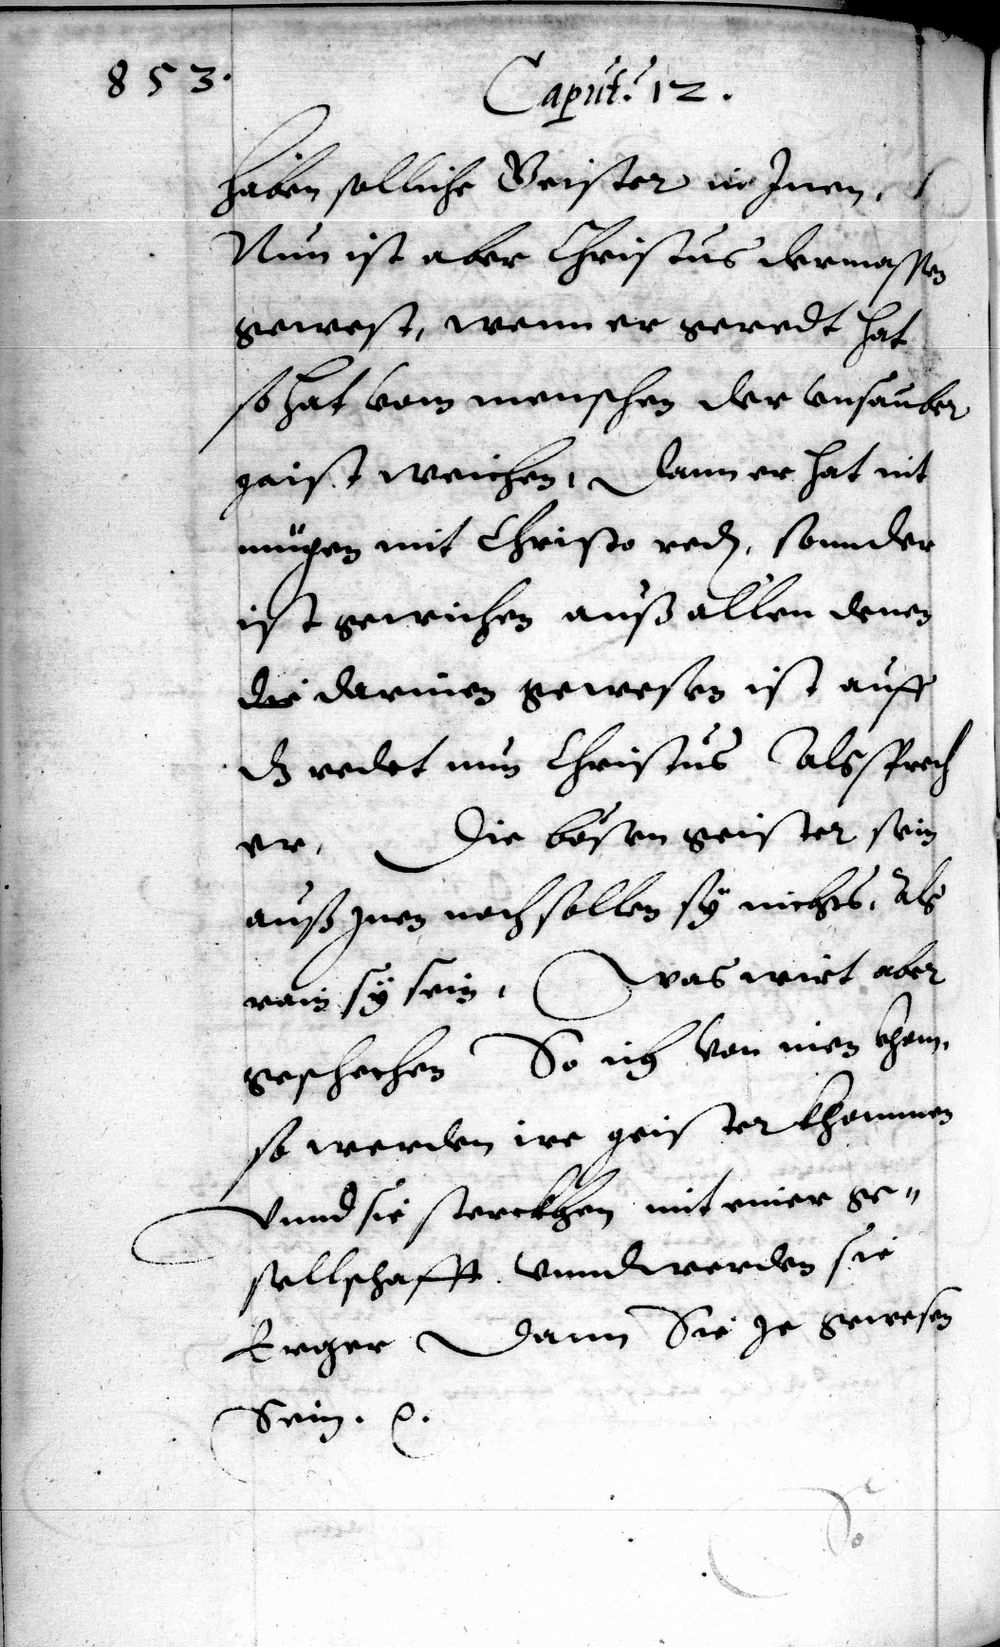 853.
Caput. 12.
haben solliche Geister in Inen,
Nun ist aber Christus dermassen
gewest, wenn er geredt hat
so hat vom menschen der unsauber
geist weichen, Dann er hat nit
mügen mit Christo reden, sonnder
ist gewichen auß allen denen
die darinen gewesen ist auff
dz redet nun Christus Als sprech
er, Die bösen geister sein
auß inen noch sollen sy nichts, Als
rain sy sein, Was wirt aber
geschechen So ich von inen khom,
so werden ire geister khommen
Vnnd sie sterckhen mit einer ge„
sellschafft vnnd werden sie
Erger Dann Sie Je gewesen
Sein.
So